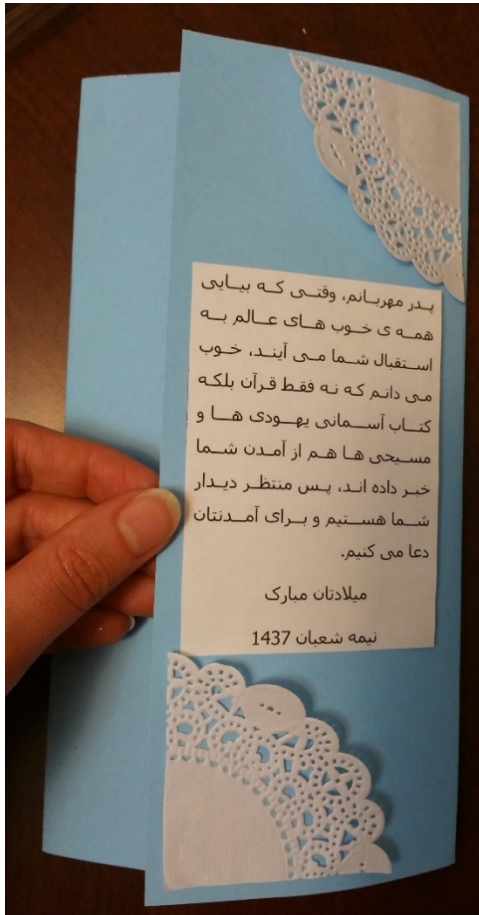 پدر مهربانم، وقتی که بیایی
همه ی خوب های عالم به
استقبال شما می آیند، خوب
می دانم که نه فقط قرآن بلکه
کتاب آسمانی یهودی ها و
مسیحی ها هم از آمدن شما
خبر داده اند، پس منتظر دیدار
شما هستیم و برای آمدنتان
دعا می کنیم.
میلادتان مبارک
نیمه شعبان 1437